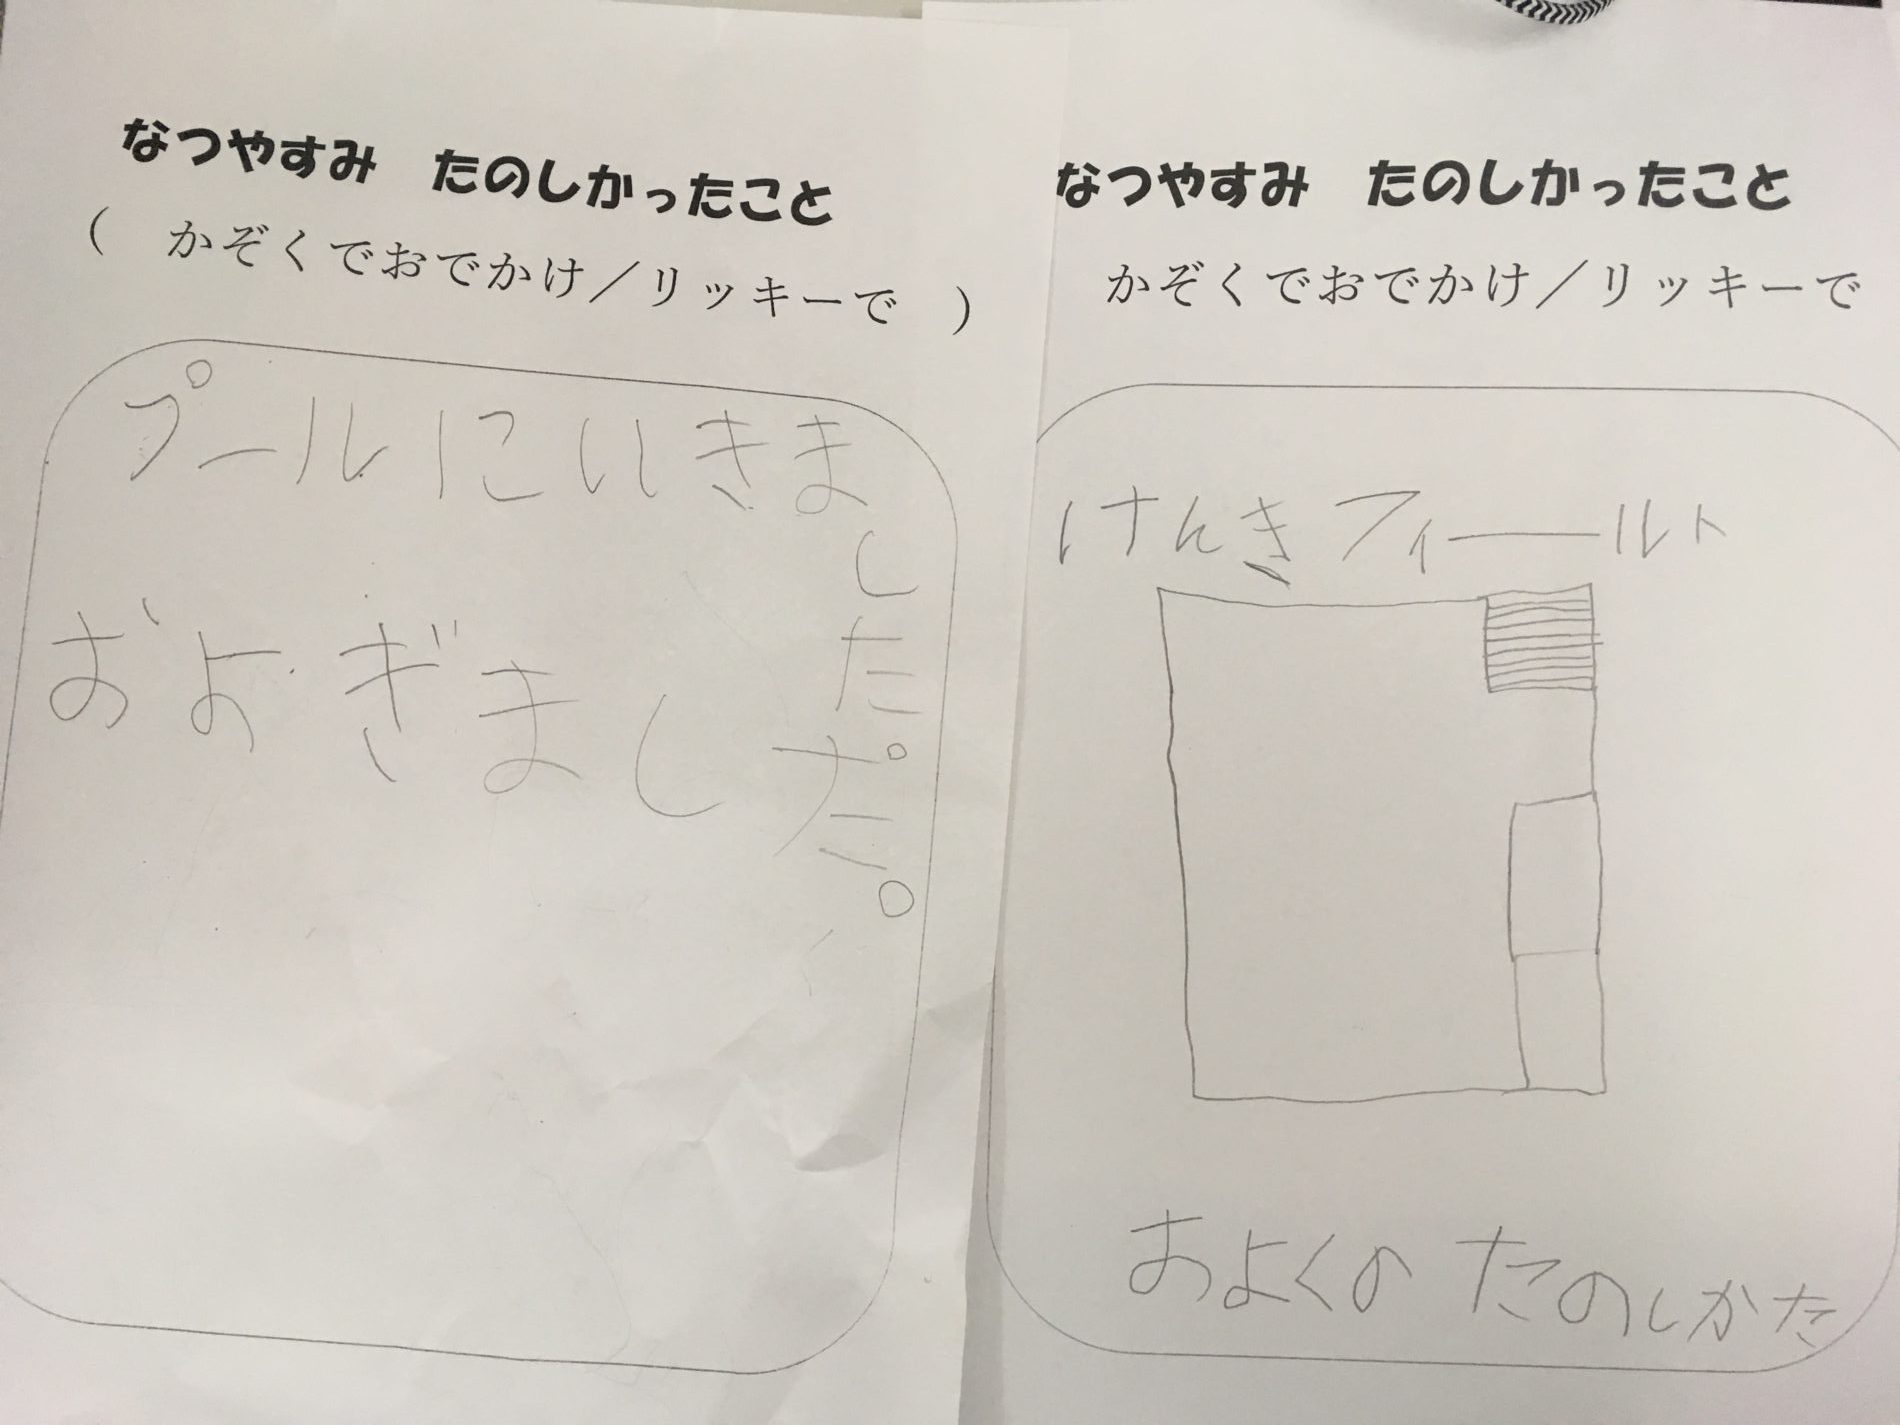 なつやすみ　たのしかったこと
（　かぞくでおでかけ／リッキーで　）
プールにいきま
した。
およぎました。
なつやすみ　たのしかったこと
かぞくでおでかけ／リッキーで
けんきフィールト
およくの たのしかた